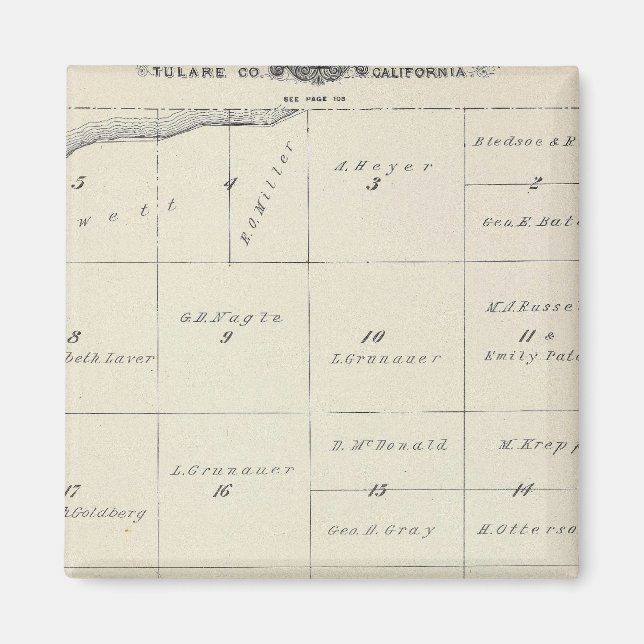 TULARE CO. CALIFORNIA
SEE PAGE 103
5
wett
4
E.O. Miller
A. Heyer
3
Bledsoe & R
2
Geo. E. Bat
8
beth Laver
G.D. Nagle
9
10
L. Grunauer
M.A. Russel
11 &
Emily Pat
17
Goldberg
L. Grunauer
16
D. McDonald
15
Geo. D. Gray
M. Krepp
14
H. Otterso